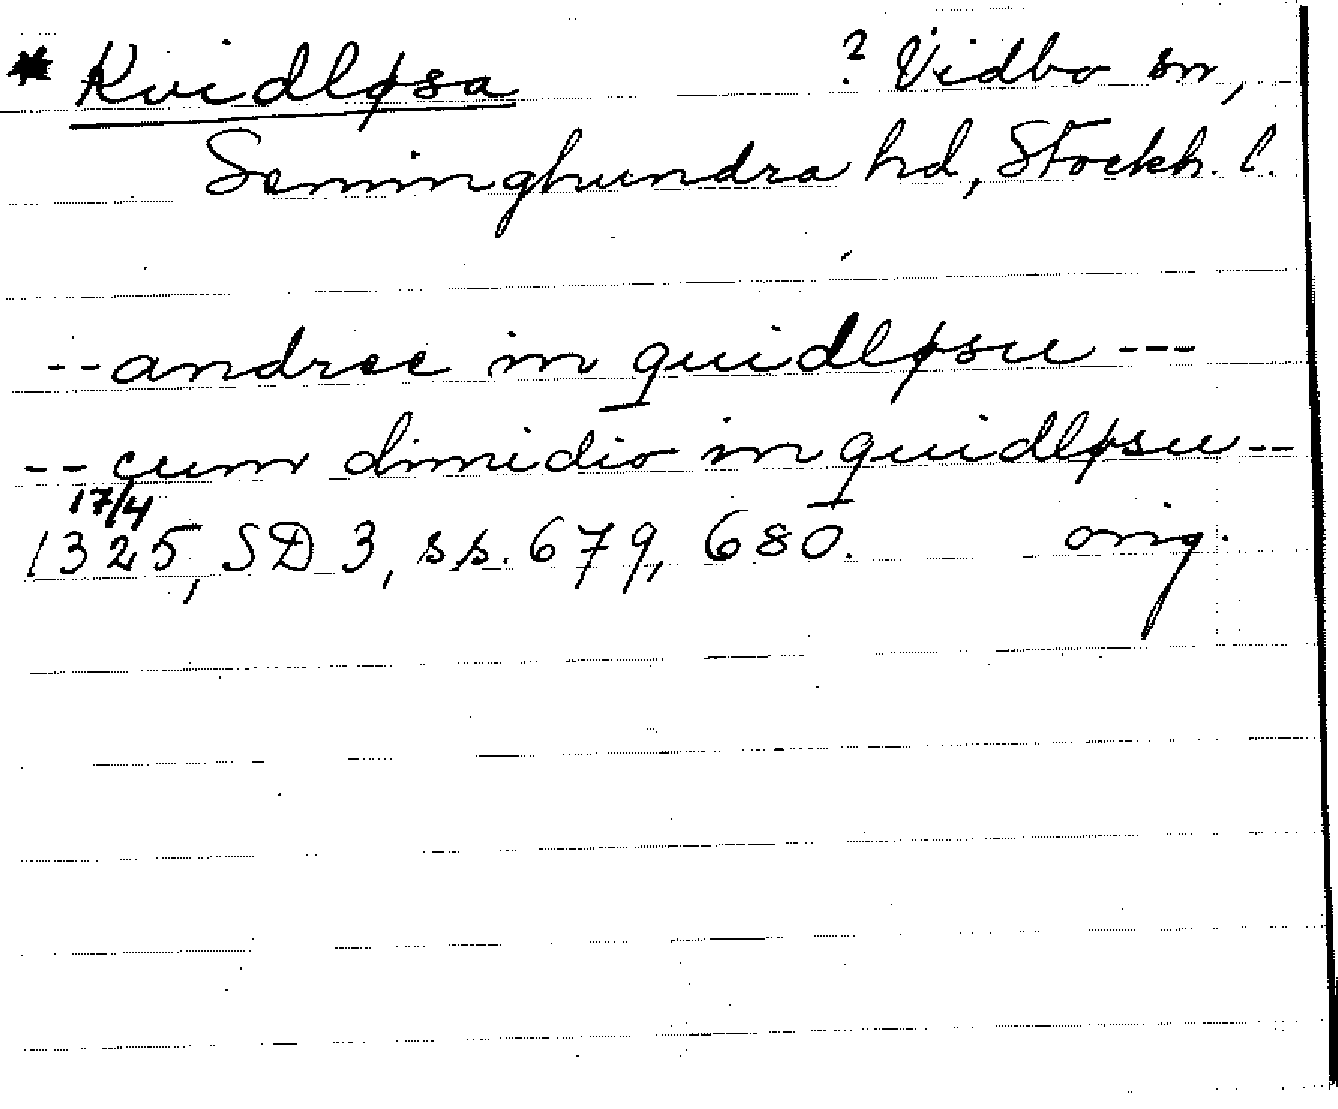 * Kvidløsa ? Vidbo sn,
Seminghundra hd, Stockh. l.
--andree in quidløsu---
--cum dimidio in quidløsu--
17/4
1325, SD 3, ss. 679, 680. orig.